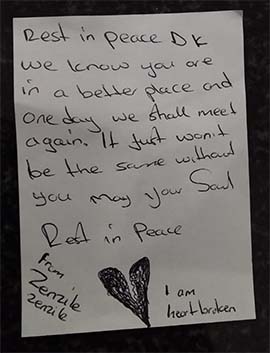 Rest in Peace DK
we know you are
in a better place and
one day we shall meet
again. It just won't
be the same without
you may your Soul
Rest in Peace
From
Zenzile
zenzile
I am
heartbroken